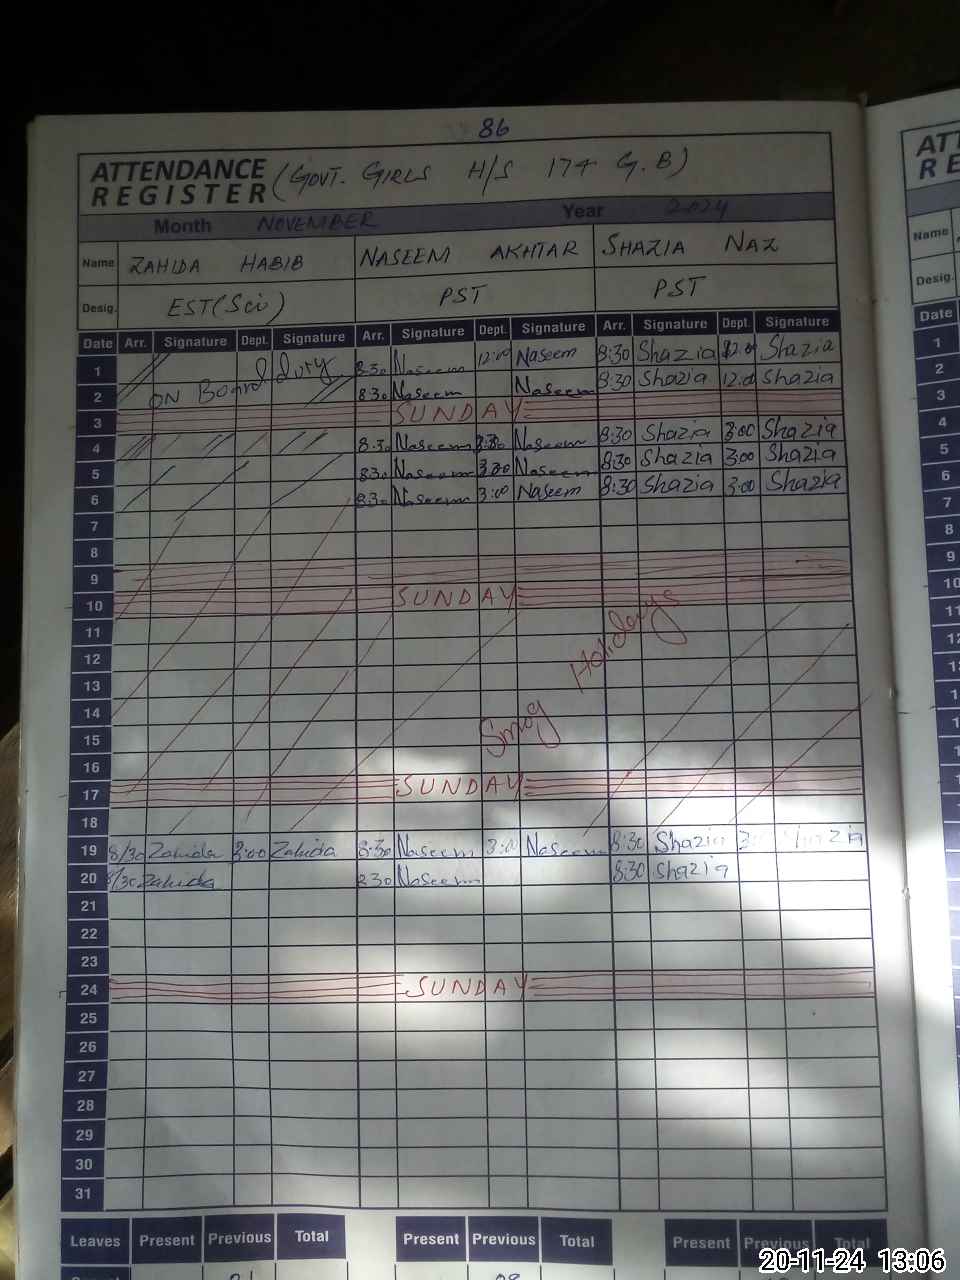 86
ATTENDANCE REGISTER (GOVT. GIRLS H/S 174 G.B)
Month NOVEMBER Year 2024
Name ZAHIDA HABIB NASEEM AKHTAR SHAZIA NAZ
Desig. EST(Sci) PST PST
Date Arr. Signature Dept. Signature Arr. Signature Dept. Signature Arr. Signature Dept. Signature
1 8:30 Naseem 12:00 Naseem 8:30 Shazia 12:00 Shazia
ON Board duty
2 8:30 Naseem Naseem 8:30 Shazia 12:00 Shazia
3 SUNDAY
4 8:30 Naseem 3:30 Naseem 8:30 Shazia 3:00 Shazia
5 8:30 Naseem 3:30 Naseem 8:30 Shazia 3:00 Shazia
6 8:30 Naseem 3:00 Naseem 8:30 Shazia 3:00 Shazia
7
8
9
10 SUNDAY
11
12
13
14
15
Smog Holidays
16
17 SUNDAY
18
19 8/30 Zahida 3:00 Zahida 8:30 Naseem 3:00 Naseem 8:30 Shazia 3: Shazia
20 8/30 Zahida 8:30 Naseem 8:30 Shazia
21
22
23
24 SUNDAY
25
26
27
28
29
30
31
Leaves Present Previous Total Present Previous Total Present Previous Total
ATT
RE
Name
Desig.
Date
1
2
3
4
5
6
7
8
9
10
11
20-11-24 13:06